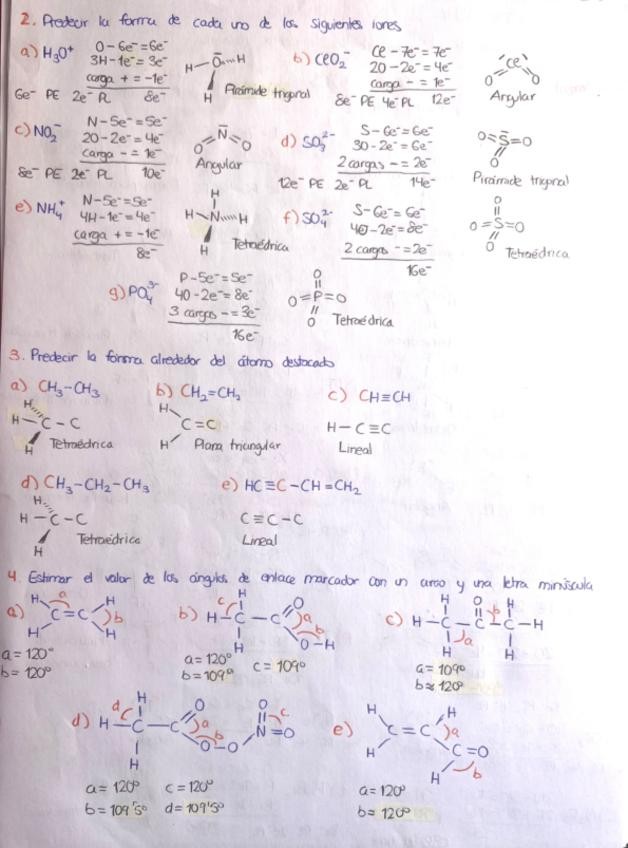 2. Predecir la forma de cada uno de los siguientes iones
a) H₃O⁺
O - 6e⁻ = 6e⁻
3H - 1e⁻ = 3e⁻
carga + = -1e⁻
6e⁻ PE 2e⁻ PL 8e⁻
H O H
H
Pirámide trigonal
b) ClO₂⁻
Cl - 7e⁻ = 7e⁻
2O - 2e⁻ = 4e⁻
carga - = 1e⁻
8e⁻ PE 4e⁻ PL 12e⁻
Cl
O O
Angular
c) NO₂⁻
N - 5e⁻ = 5e⁻
2O - 2e⁻ = 4e⁻
carga - = 1e⁻
8e⁻ PE 2e⁻ PL 10e⁻
O=N=O
Angular
d) SO₃²⁻
S - 6e⁻ = 6e⁻
3O - 2e⁻ = 6e⁻
2 cargas - = 2e⁻
12e⁻ PE 2e⁻ PL 14e⁻
O=S=O
O
Pirámide trigonal
e) NH₄⁺
N - 5e⁻ = 5e⁻
4H - 1e⁻ = 4e⁻
carga + = -1e⁻
8e⁻
H
H-N H
H
Tetraédrica
f) SO₄²⁻
S - 6e⁻ = 6e⁻
4O - 2e⁻ = 8e⁻
2 cargas - = 2e⁻
16e⁻
O
O=S=O
O
Tetraédrica
g) PO₄³⁻
P - 5e⁻ = 5e⁻
4O - 2e⁻ = 8e⁻
3 cargas - = 3e⁻
16e⁻
O
O=P=O
O
Tetraédrica
3. Predecir la forma alrededor del átomo destacado
a) CH₃-CH₃
H
H-C-C
H
Tetraédrica
b) CH₂=CH₂
H
C=C
H
Plana triangular
c) CH≡CH
H-C≡C
Lineal
d) CH₃-CH₂-CH₃
H
H-C-C
H
Tetraédrica
e) HC≡C-CH=CH₂
C≡C-C
Lineal
4. Estimar el valor de los ángulos de enlace marcador con un arco y una letra minúscula
a)
H a H
C=C b
H H
a = 120°
b = 120°
b)
c H O
H-C-C a
H b
O-H
a = 120° c = 109°
b = 109°
c)
H O b H
H-C-C-C-H
H a H
a = 109°
b ≈ 120°
d)
d H O O c
H-C-C a b N=O
H O-O
a = 120° c = 120°
b = 109'5° d = 109'5°
e)
H H
C=C a
H C=O
H b
a = 120°
b ≈ 120°